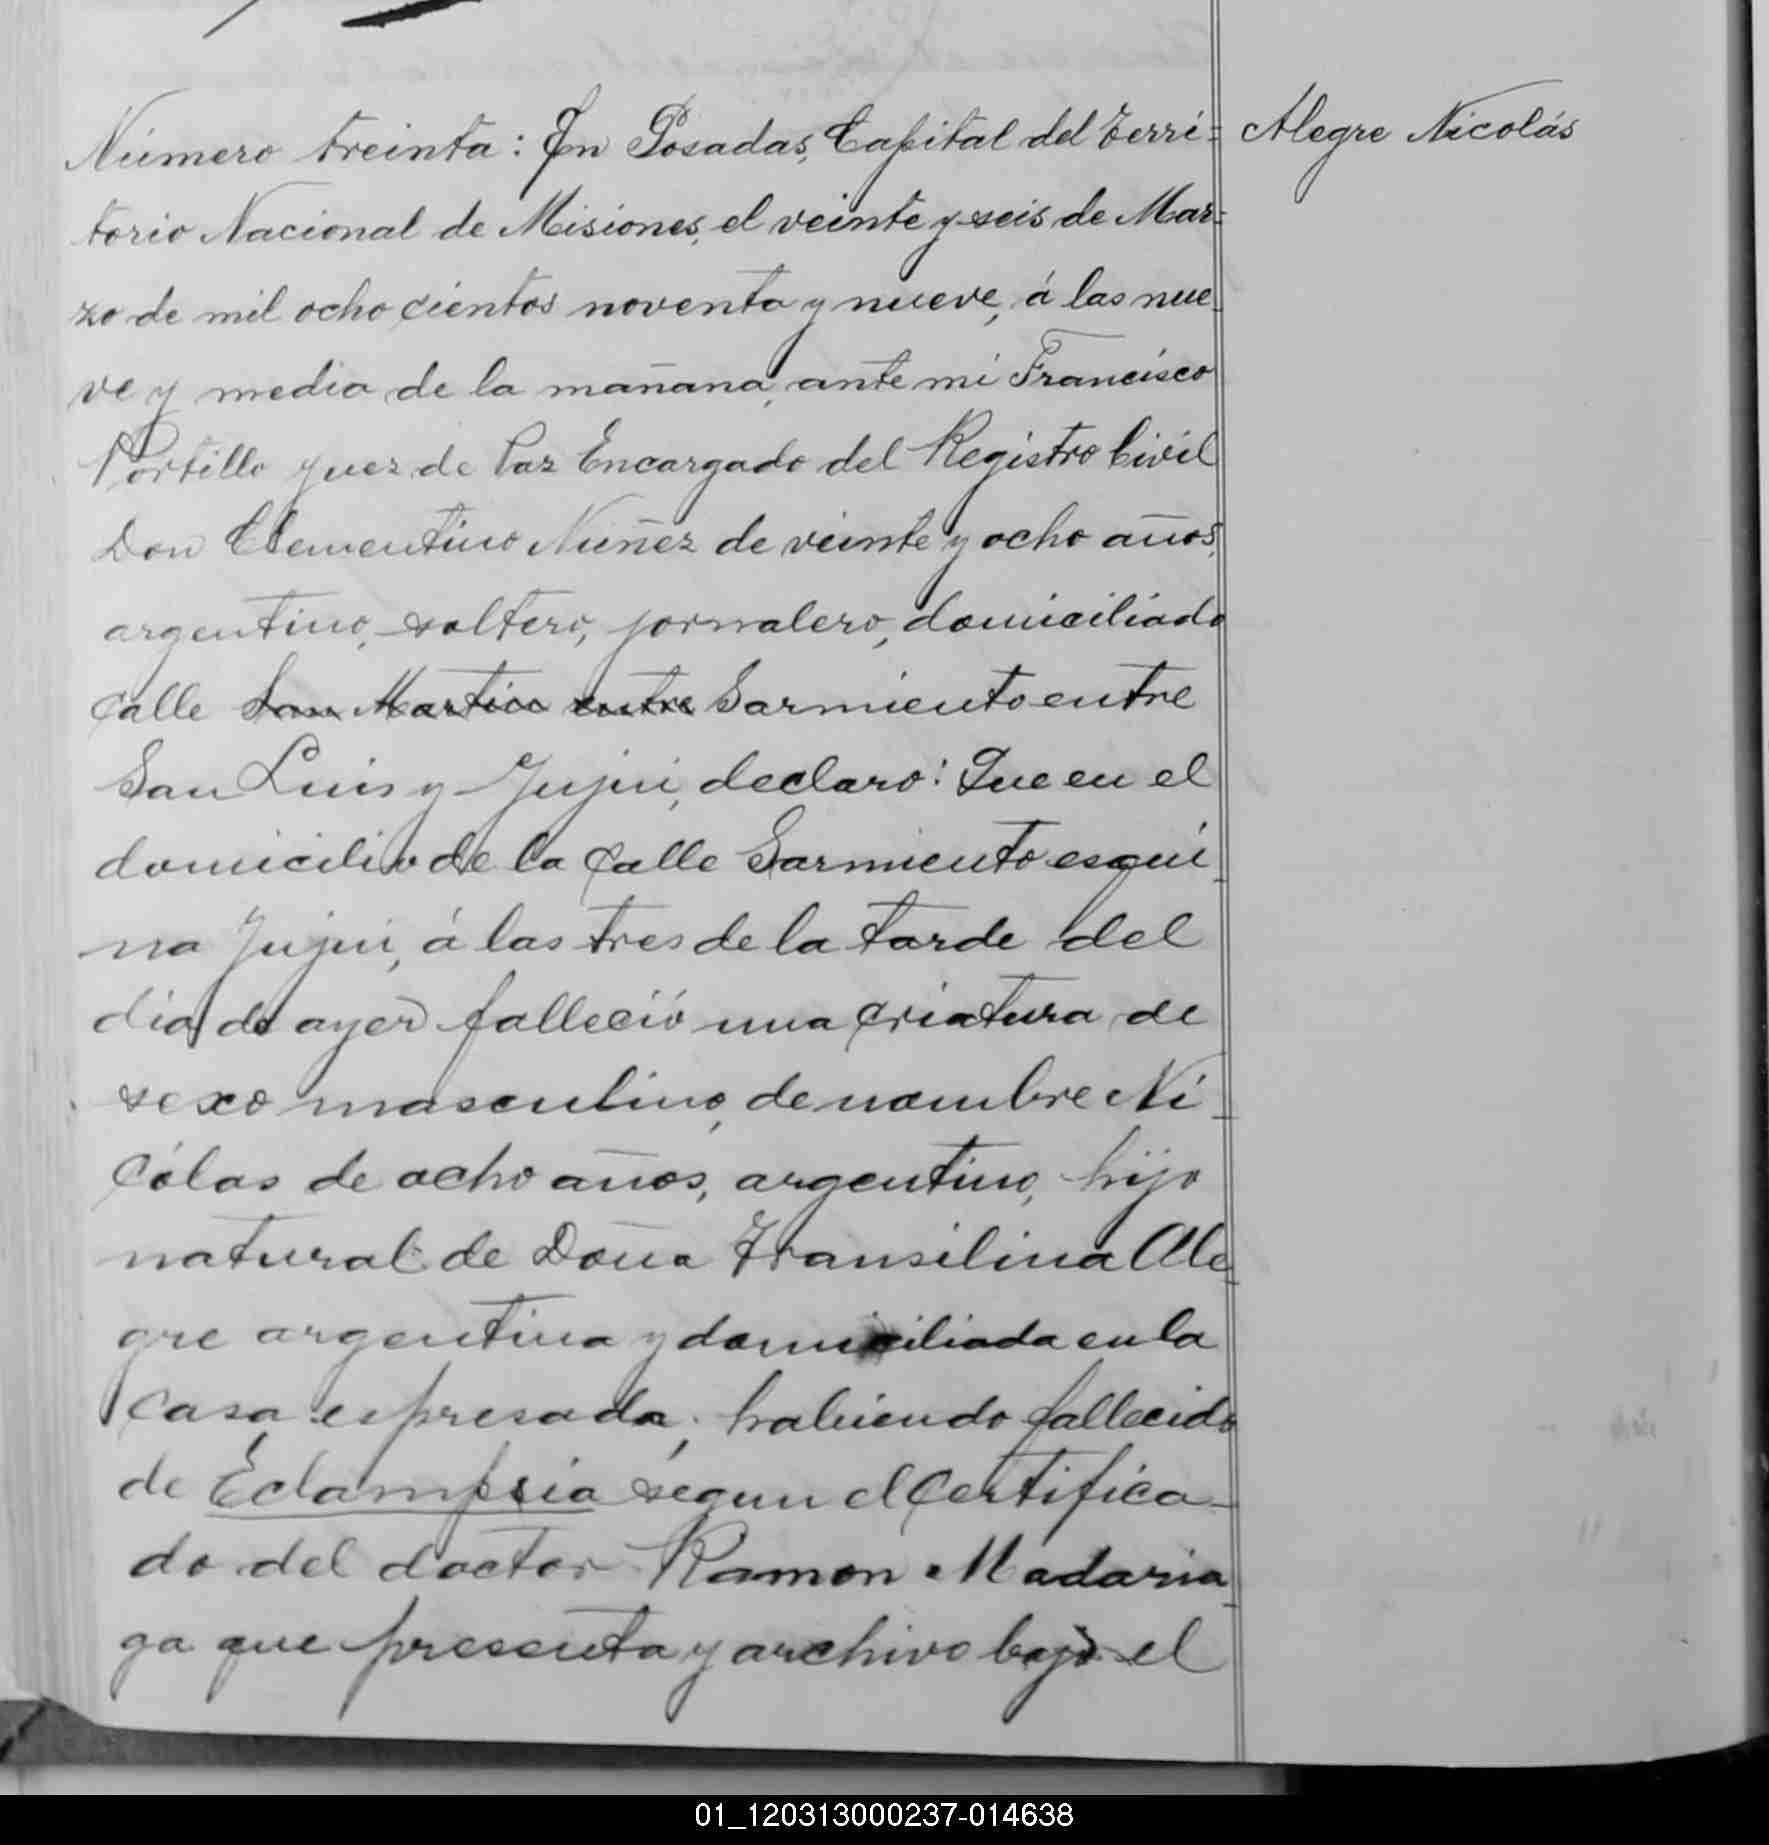 Número treinta: En Posadas, Capital del Terri=
Alegre Nicolás
torio Nacional de Misiones, el veinte y seis de Mar=
zo de mil ocho cientos noventa y nueve, á las nue_
ve y media de la mañana, ante mi Francisco
Portillo Juez de Paz Encargado del Registro Civil
Don Clementino Nuñez de veinte y ocho años,
argentino, soltero, jornalero, domiciliado
calle San Martin entre Sarmiento entre
San Luis y Jujui, declaro: Que en el
domicilio de la calle Sarmiento esqui_
na Jujui, á las tres de la tarde del
dia de ayer falleció una criatura de
sexo masculino, de nombre Ni_
cólas de ocho años, argentino, hijo
natural de Doña Transilina Ale_
gre argentina y domiciliada en la
casa espresada, habiendo fallecido
de Eclampsia segun el certifica_
do del doctor Ramon Madaria_
ga que presenta y archivo bajo el
01_120313000237-014638